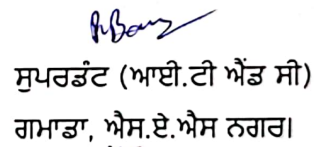 ਸੁਪਰਡੰਟ (ਆਈ.ਟੀ ਐਂਡ ਸੀ)
ਗਮਾਡਾ, ਐਸ.ਏ.ਐਸ ਨਗਰ।